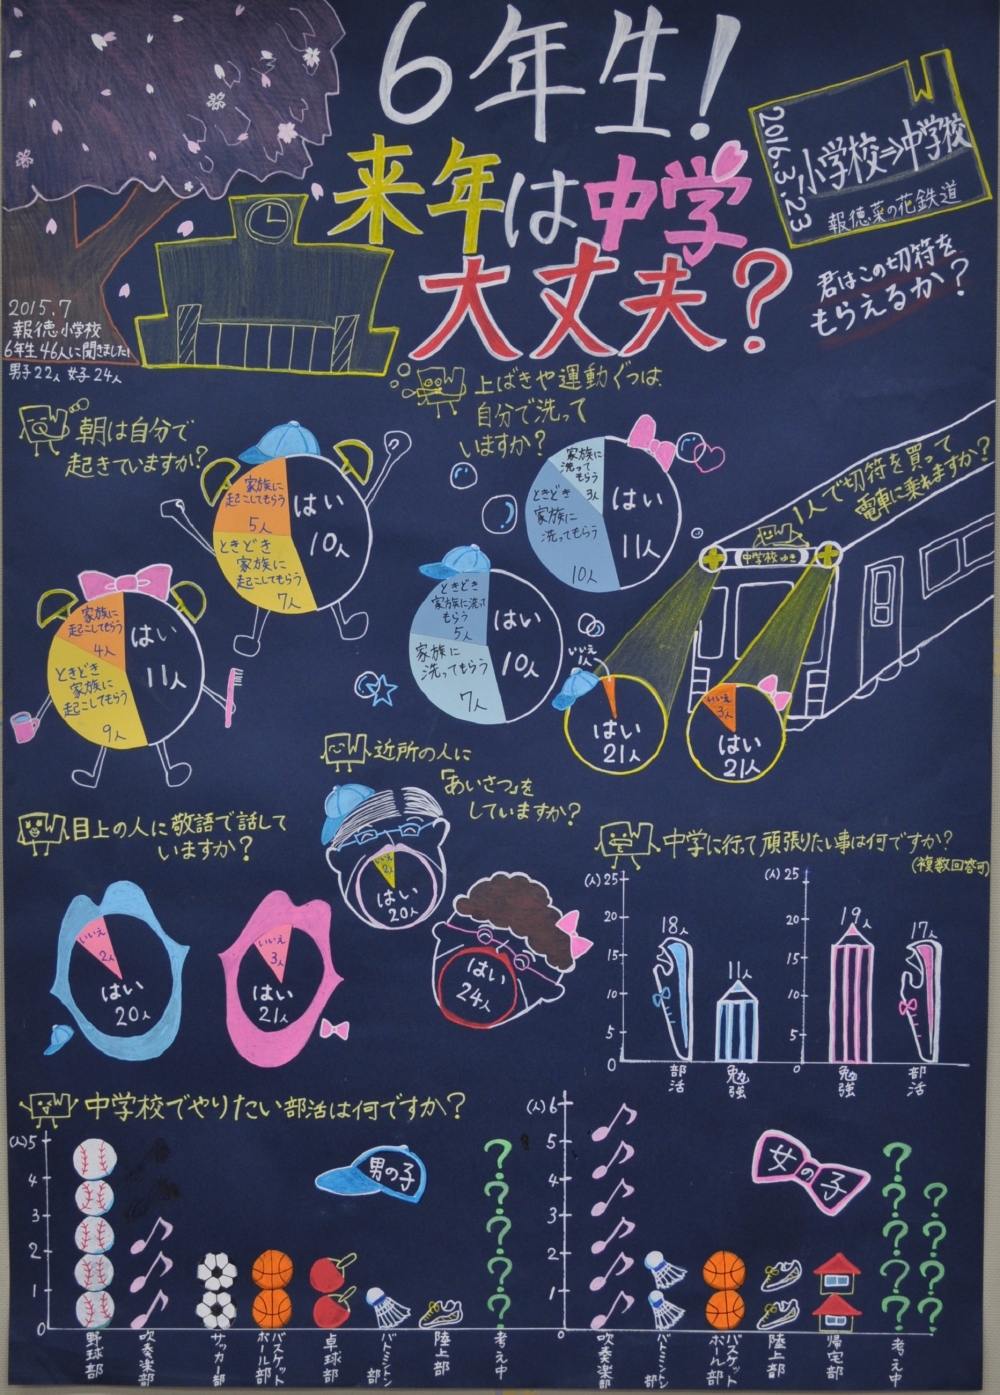 6年生!
来年は中学
大丈夫?
2016.3.23
小学校⇒中学校
報徳菜の花鉄道
君はこの切符を
もらえるか?
2015.7
報徳小学校
6年生46人に聞きました!
男子22人 女子24人
朝は自分で
起きていますか?
家族に
起こしてもらう
5人
はい
10人
ときどき
家族に
起こしてもらう
7人
家族に
起こしてもらう
4人
はい
11人
ときどき
家族に
起こしてもらう
9人
上ばきや運動ぐつは
自分で洗って
いますか?
家族に
洗って
もらう
3人
はい
11人
ときどき
家族に
洗ってもらう
10人
ときどき
家族に洗って
もらう
5人
はい
10人
家族に
洗ってもらう
7人
1人で切符を買って
電車に乗れますか?
中学校ゆき
いいえ
1人
はい
21人
いいえ
3人
はい
21人
近所の人に
「あいさつ」を
していますか?
いいえ
2人
はい
20人
はい
24人
目上の人に敬語で話して
いますか?
いいえ
2人
はい
20人
いいえ
3人
はい
21人
中学に行って頑張りたい事は何ですか?
(複数回答可)
(人)
25
20
15
10
5
0
18人
11人
部活
勉強
(人)
25
20
15
10
5
0
19人
17人
勉強
部活
中学校でやりたい部活は何ですか?
(人)
5
4
3
2
1
0
男の子
野球部
吹奏楽部
サッカー部
バスケット
ボール部
卓球部
バトミントン
部
陸上部
考え中
(人)
6
5
4
3
2
1
0
女の子
吹奏楽部
バトミントン
部
バスケット
ボール部
陸上部
帰宅部
考え中